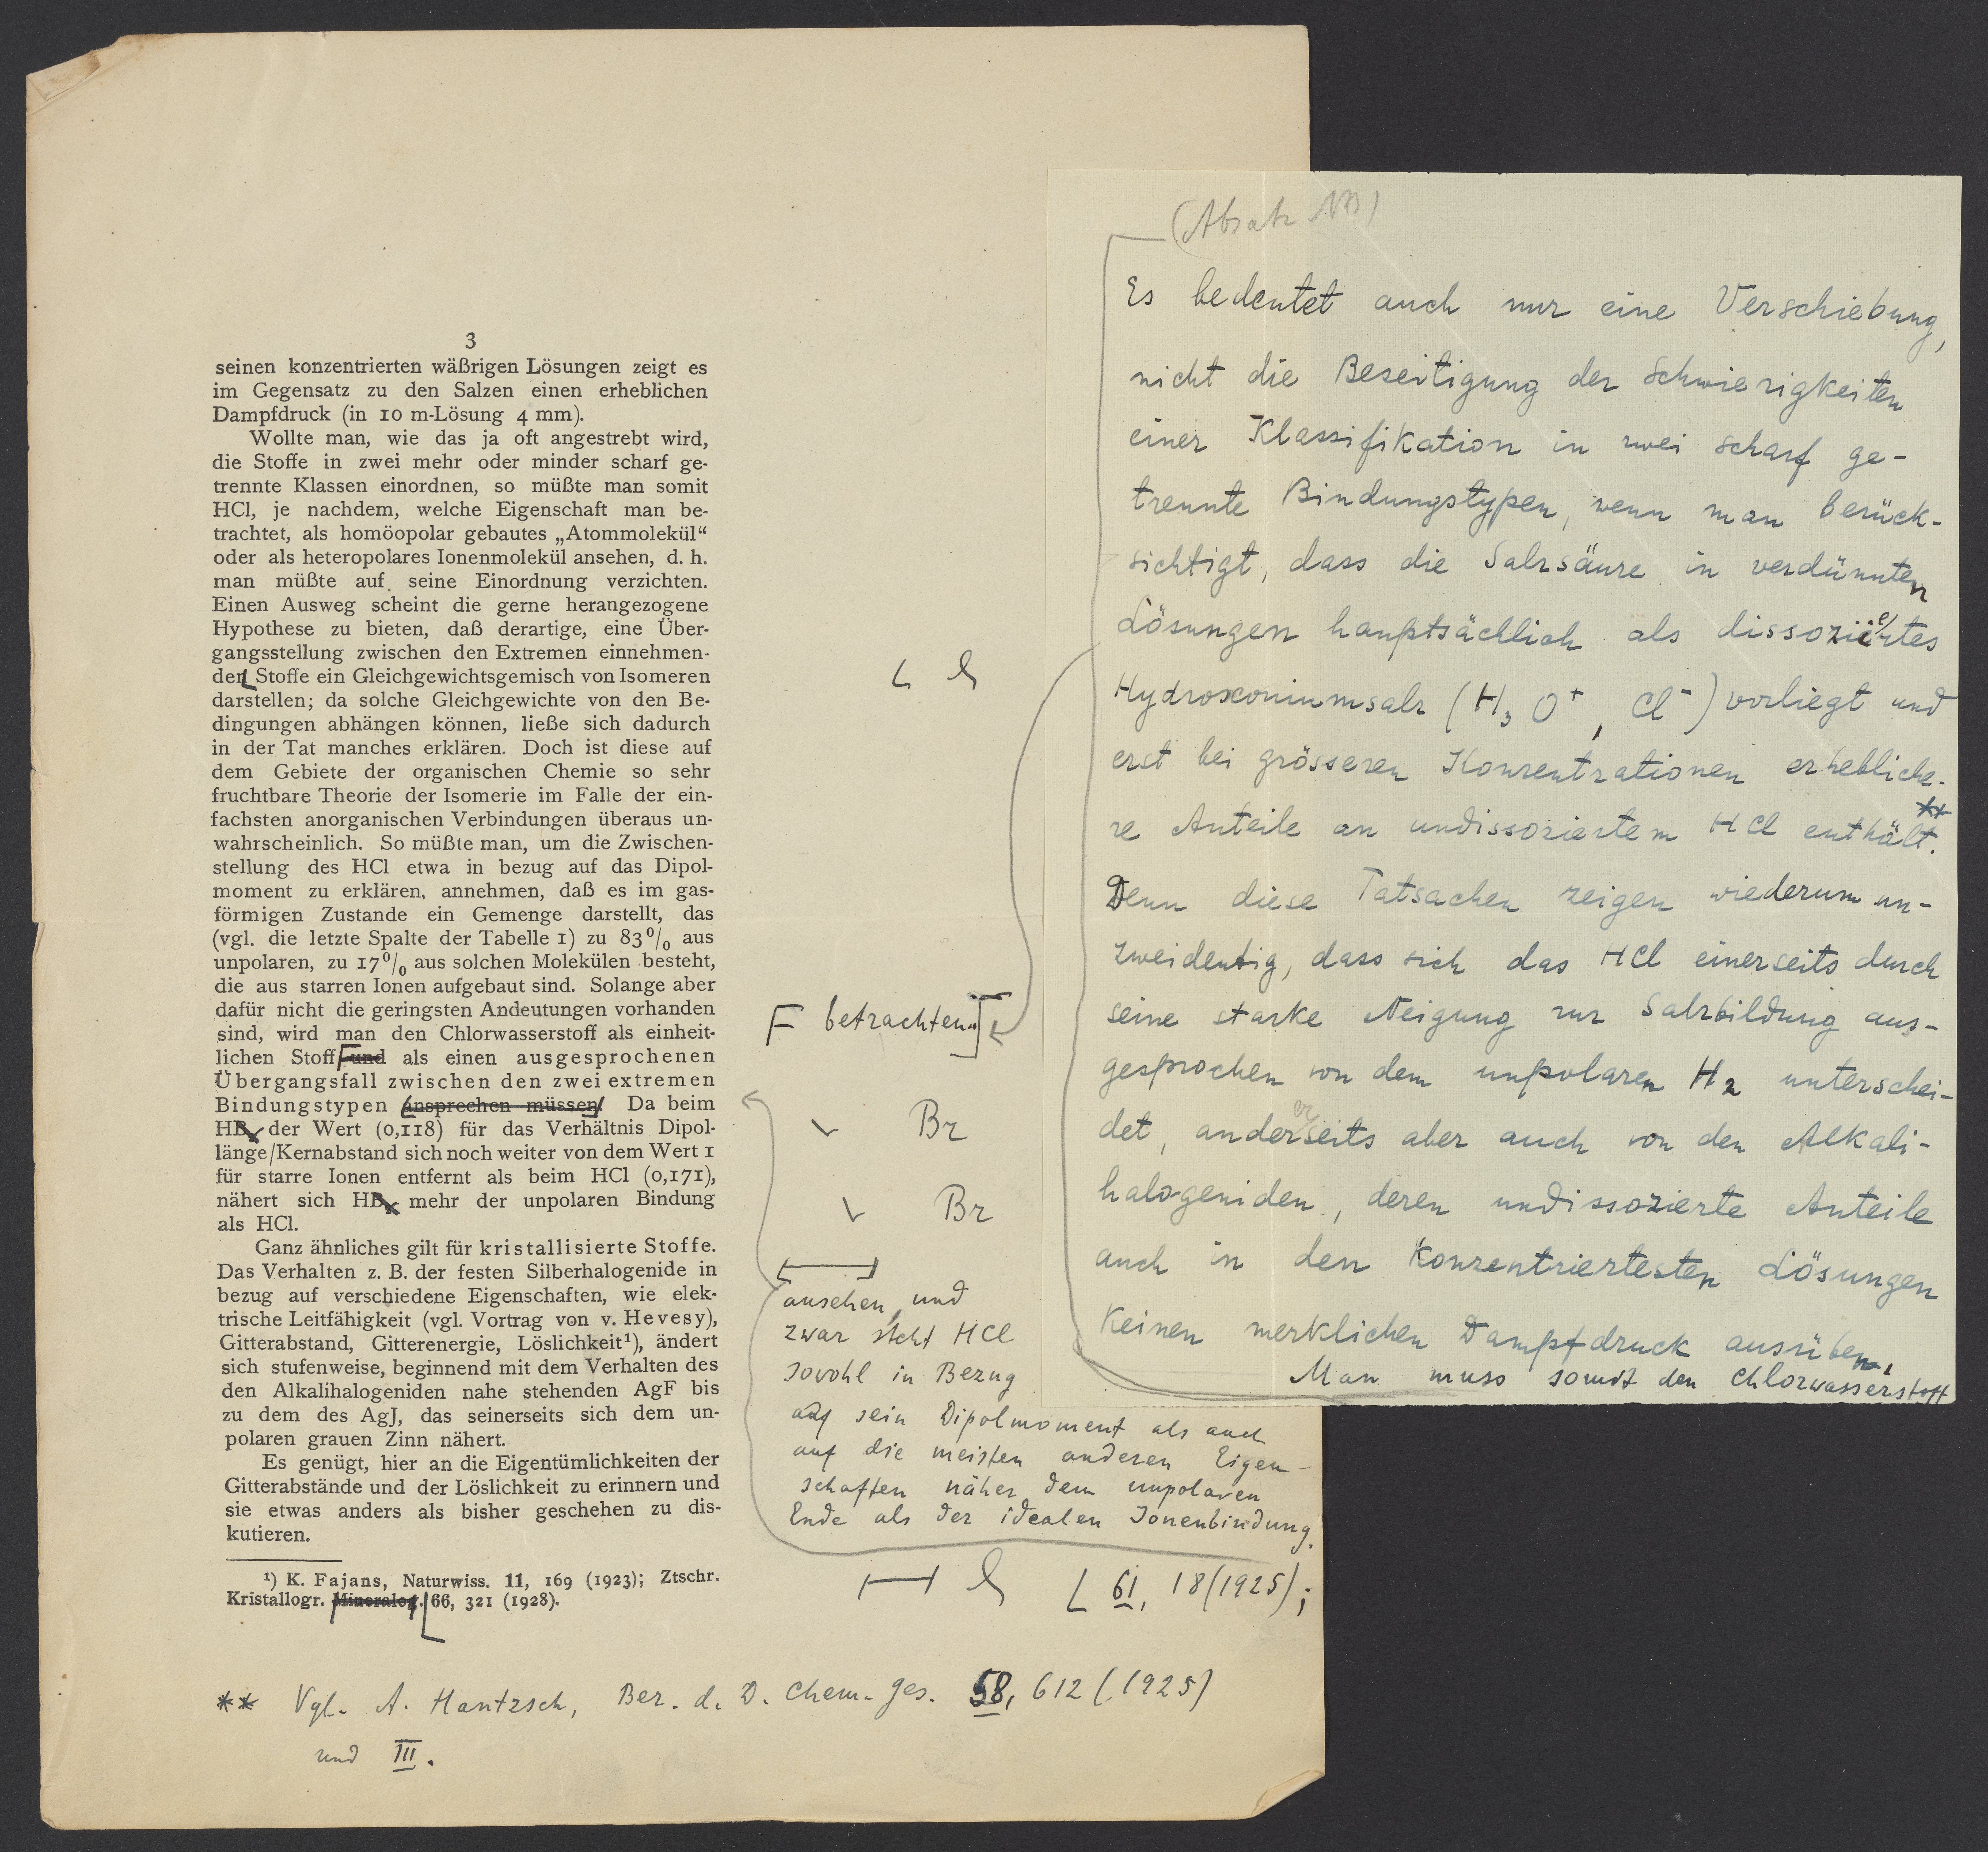 3
seinen konzentrierten wäßrigen Lösungen zeigt es
im Gegensatz zu den Salzen einen erheblichen
Dampfdruck (in 10 m-Lösung 4 mm).
Wollte man, wie das ja oft angestrebt wird,
die Stoffe in zwei mehr oder minder scharf ge-
trennte Klassen einordnen, so müßte man somit
HCl, je nachdem, welche Eigenschaft man be-
trachtet, als homöopolar gebautes „Atommolekül“
oder als heteropolares Ionenmolekül ansehen, d. h.
man müßte auf seine Einordnung verzichten.
Einen Ausweg scheint die gerne herangezogene
Hypothese zu bieten, daß derartige, eine Über-
gangsstellung zwischen den Extremen einnehmen-
den Stoffe ein Gleichgewichtsgemisch von Isomeren
darstellen; da solche Gleichgewichte von den Be-
dingungen abhängen können, ließe sich dadurch
in der Tat manches erklären. Doch ist diese auf
dem Gebiete der organischen Chemie so sehr
fruchtbare Theorie der Isomerie im Falle der ein-
fachsten anorganischen Verbindungen überaus un-
wahrscheinlich. So müßte man, um die Zwischen-
stellung des HCl etwa in bezug auf das Dipol-
moment zu erklären, annehmen, daß es im gas-
förmigen Zustande ein Gemenge darstellt, das
(vgl. die letzte Spalte der Tabelle 1) zu 83% aus
unpolaren, zu 17% aus solchen Molekülen besteht,
die aus starren Ionen aufgebaut sind. Solange aber
dafür nicht die geringsten Andeutungen vorhanden
sind, wird man den Chlorwasserstoff als einheit-
lichen Stoff und als einen ausgesprochenen
Übergangsfall zwischen den zwei extremen
Bindungstypen ansprechen müssen. Da beim
HB der Wert (0,118) für das Verhältnis Dipol-
länge/Kernabstand sich noch weiter von dem Wert 1
für starre Ionen entfernt als beim HCl (0,171),
nähert sich HB mehr der unpolaren Bindung
als HCl.
Ganz ähnliches gilt für kristallisierte Stoffe.
Das Verhalten z. B. der festen Silberhalogenide in
bezug auf verschiedene Eigenschaften, wie elek-
trische Leitfähigkeit (vgl. Vortrag von v. Hevesy),
Gitterabstand, Gitterenergie, Löslichkeit¹), ändert
sich stufenweise, beginnend mit dem Verhalten des
den Alkalihalogeniden nahe stehenden AgF bis
zu dem des AgJ, das seinerseits sich dem un-
polaren grauen Zinn nähert.
Es genügt, hier an die Eigentümlichkeiten der
Gitterabstände und der Löslichkeit zu erinnern und
sie etwas anders als bisher geschehen zu dis-
kutieren.
¹) K. Fajans, Naturwiss. 11, 169 (1923); Ztschr.
Kristallogr. Mineralog. 66, 321 (1928).
betrachten
Br
Br
ansehen, und
zwar steht HCl
sowohl in Bezug
auf sein Dipolmoment als auch
auf die meisten anderen Eigen-
schaften näher dem unpolaren
Ende als der idealen Ionenbindung.
61, 18 (1925);
** Vgl. A. Hantzsch, Ber. d. D. Chem. Ges. 58, 612 (1925)
und III.
(Absatz NB)
Es bedeutet auch nur eine Verschiebung,
nicht die Beseitigung der Schwierigkeiten
einer Klassifikation in zwei scharf ge-
trennte Bindungstypen, wenn man berück-
sichtigt, dass die Salzsäure in verdünnten
Lösungen hauptsächlich als dissoziiertes
Hydroxoniumsalz (H₃O⁺, Cl⁻) vorliegt und
erst bei grösseren Konzentrationen erhebliche-
re Anteile an undissoziertem HCl enthält.**
Denn diese Tatsachen zeigen wiederum un-
zweideutig, dass sich das HCl einerseits durch
seine starke Neigung zur Salzbildung aus-
gesprochen von dem unpolaren H₂ unterschei-
det, andererseits aber auch von den Alkali-
halogeniden, deren undissozierte Anteile
auch in den konzentriertesten Lösungen
keinen merklichen Dampfdruck ausüben.
Man muss somit den Chlorwasserstoff